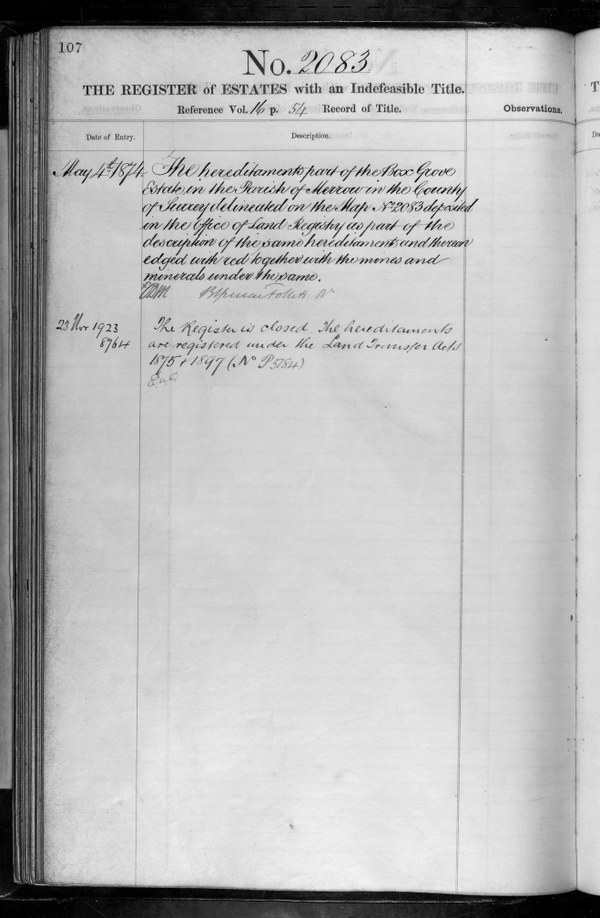 107
No. 2083
THE REGISTER of ESTATES with an Indefeasible Title.
Reference Vol. 16 p. 54 Record of Title.
Observations.
Date of Entry.
Description.
May 4th 1874 The hereditaments part of the Box Grove
Estate in the Parish of Merrow in the County
of Surrey delineated on the Map No 2083 deposited
in the Office of Land Registry as part of the
description of the same hereditaments and thereon
edged with red together with the mines and
minerals under the same.
23 Nov 1923 The Register is closed. The hereditaments
8764 are registered under the Land Transfer Acts
1875 & 1897 (No P5184)